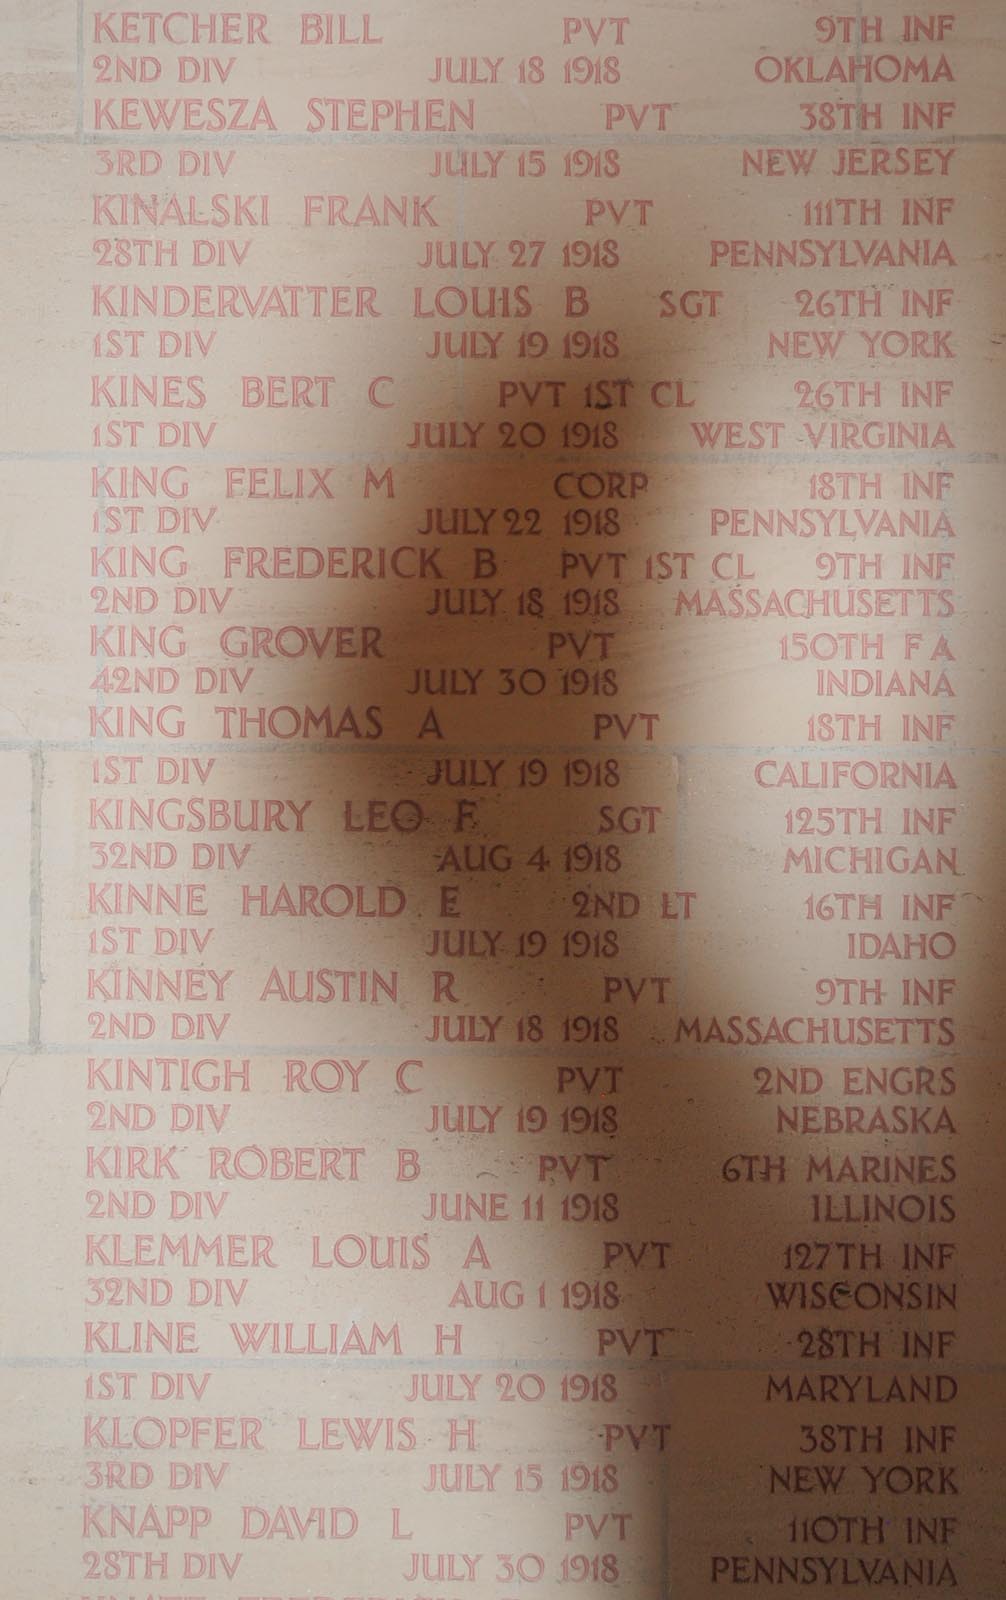 KETCHER BILL PVT 9TH INF
2ND DIV JULY 18 1918 OKLAHOMA
KEWESZA STEPHEN PVT 38TH INF
3RD DIV JULY 15 1918 NEW JERSEY
KINALSKI FRANK PVT 111TH INF
28TH DIV JULY 27 1918 PENNSYLVANIA
KINDERVATTER LOUIS B SGT 26TH INF
1ST DIV JULY 19 1918 NEW YORK
KINES BERT C PVT 1ST CL 26TH INF
1ST DIV JULY 20 1918 WEST VIRGINIA
KING FELIX M CORP 18TH INF
1ST DIV JULY 22 1918 PENNSYLVANIA
KING FREDERICK B PVT 1ST CL 9TH INF
2ND DIV JULY 18 1918 MASSACHUSETTS
KING GROVER PVT 150TH F A
42ND DIV JULY 30 1918 INDIANA
KING THOMAS A PVT 18TH INF
1ST DIV JULY 19 1918 CALIFORNIA
KINGSBURY LEO F SGT 125TH INF
32ND DIV AUG 4 1918 MICHIGAN
KINNE HAROLD E 2ND LT 16TH INF
1ST DIV JULY 19 1918 IDAHO
KINNEY AUSTIN R PVT 9TH INF
2ND DIV JULY 18 1918 MASSACHUSETTS
KINTIGH ROY C PVT 2ND ENGRS
2ND DIV JULY 19 1918 NEBRASKA
KIRK ROBERT B PVT 6TH MARINES
2ND DIV JUNE 11 1918 ILLINOIS
KLEMMER LOUIS A PVT 127TH INF
32ND DIV AUG 1 1918 WISCONSIN
KLINE WILLIAM H PVT 28TH INF
1ST DIV JULY 20 1918 MARYLAND
KLOPFER LEWIS H PVT 38TH INF
3RD DIV JULY 15 1918 NEW YORK
KNAPP DAVID L PVT 110TH INF
28TH DIV JULY 30 1918 PENNSYLVANIA